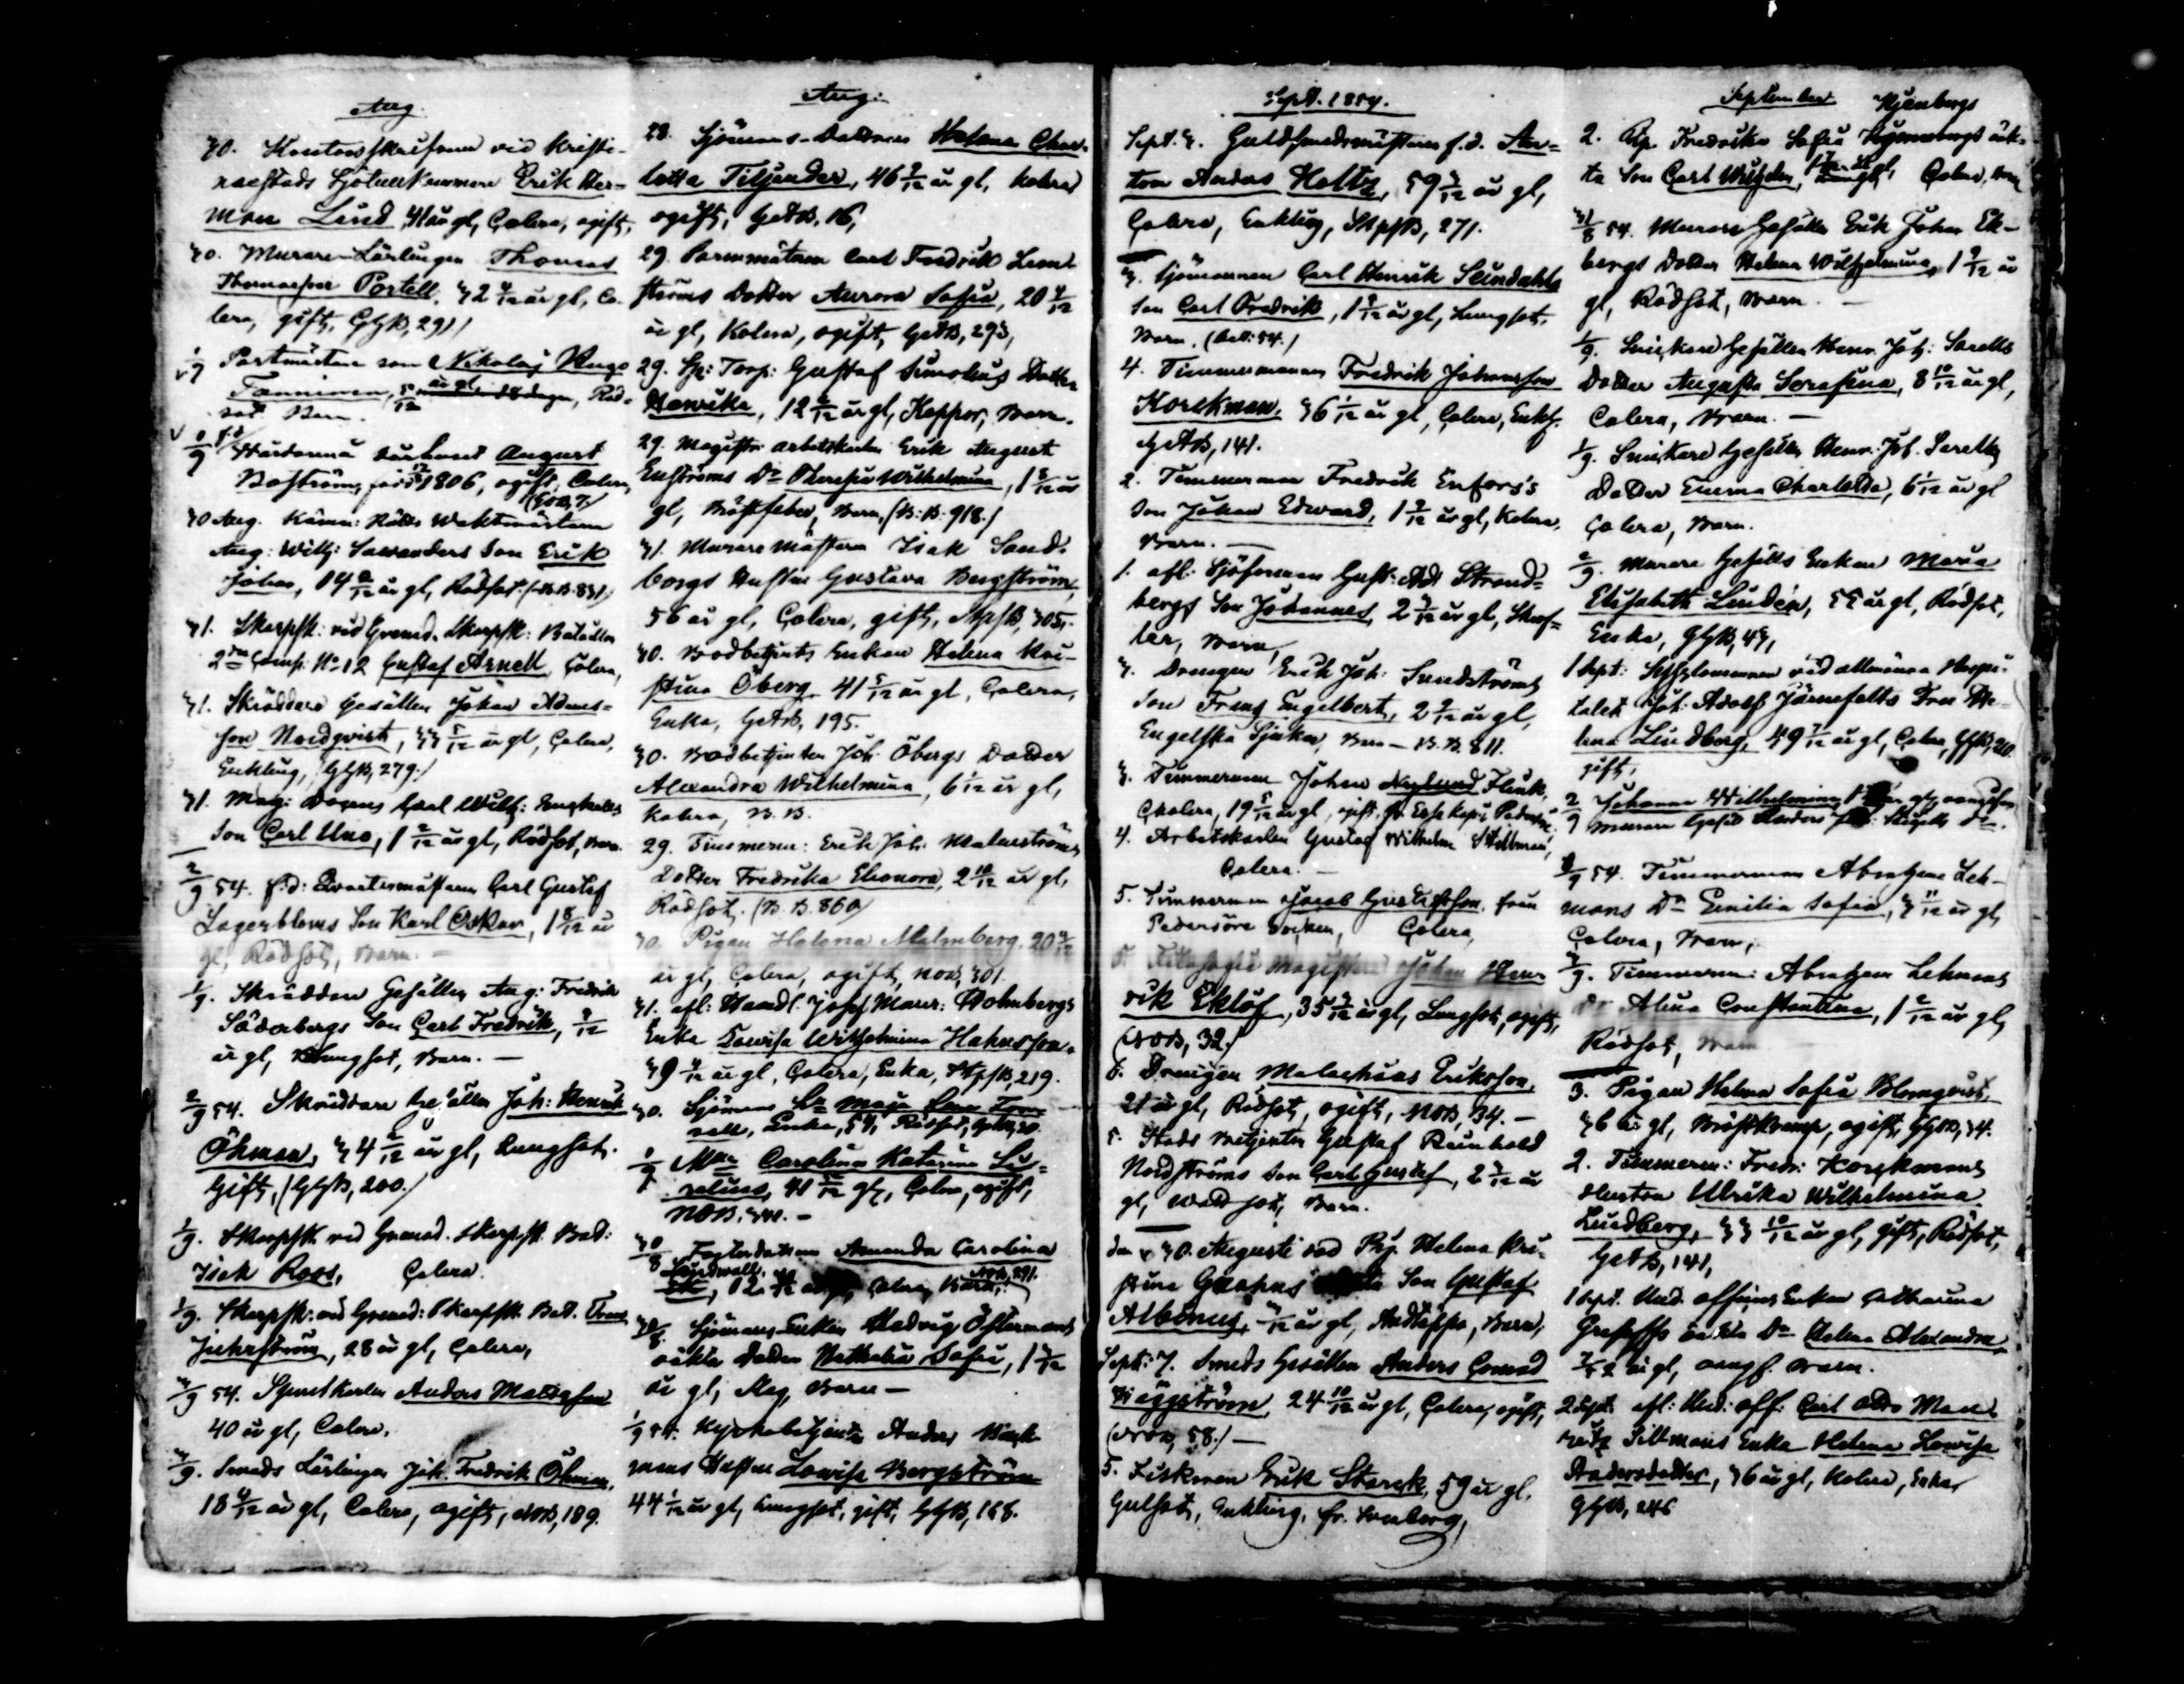 Aug.
30. Kontorsskrifvaren vid Kristi-
naestads Sjötullkammare Erik Her-
man Lind, 41 år gl, Colera, ogift,
30. Murare-Lärlingen Thomas
Thomasson Portell, 32 4/12 år gl, Co-
lera, gift, GGB, 291
1/9 Postmästaren son Nikolaj Hugo
Tanninen, 5/12 Röd-
sot Barn.
1/9 August
Boström, född 1806, ogift, Colera,
30 Aug. Kämn: Rätts Waktmästaren
Aug: Wilh: Sawanders Son Erik
Johan, 14 år gl, Rödsot. (B.B. 831)
31. Skarpsk: vid Grenad. Skarpsk: Bataillon
2dra Comp: No 12 Gustaf Arnell, Colera,
31. Skräddare Gesällen Johan Adams-
son Nordqvist, 33 5/12 år gl, Colera,
Enkling, (GGB, 279.)
31. Mag: Docens Carl Wilh:
Son Carl Uno, 1 2/12 år gl, Rödsot, Barn.
2/9 54. f.d: Qvartermästaren Carl Gustaf
Lagerbloms Son Karl Oskar, 1 8/12 år
gl, Rödsot, Barn. —
1/9. Skräddare Gesällen Aug: Fredrik
Söderbergs Son Carl Fredrik, 9/12
år gl, Lungsot, Barn. —
2/9 54. Skräddare Gesällen Joh: Henrik
Öhman, 34 2/12 år gl, Lungsot.
Gift, (GGB, 200.)
1/9. Skarpsk. vid Grenad. Skarpsk. Bat:
Isak Roos, Colera.
1/9. Skarpsk: vid Grenad: Skarpsk. Bat. Frans
28 år gl, Colera,
3/9 54. Anders Matsson
40 år gl, Colera.
3/9. Smeds Lärlingen Joh. Fredrik Öhman,
18 4/12 år gl, Colera, ogift, NOB, 189.
Aug:
28. Sjömans-Dottren Helena Char-
lotta Tiljander, 46 9/12 år gl, kolera
ogift, GetB, 16,
29 Parmmätaren Carl Fredrik Lem-
ströms Dotter Aurora Sofia, 20 4/12
år gl, Kolera, ogift, GetB, 293,
29. Sp: Torp: Gustaf Simolins Dotter
Henrika, 12 2/12 år gl, Koppor, Barn.
29. Magistr. arbetskarlen Erik August
Enströms Dr Theresia Wilhelmina, 1 8/12 år
gl, Bröstfeber, Barn, (B.B. 918.)
31. Murare Mästaren Isak Sand-
bergs Hustru Gustava Bergström,
56 år gl, Colera, gift, 305.
30. Bodbetjents Enkan Helena Kri-
stina Öberg, 41 5/12 år gl, Colera,
Enka, GetB, 195.
30. Bodbetjenten Joh. Öbergs Dotter
Alexandra Wilhelmina, 6 1/12 år gl,
Kolera, B.B.
29. Timmerm: Erik Joh: Malmströms
Dotter Fredrika Eleonora, 2 10/12 år gl,
Rödsot, (B.B. 860)
30. Pigan Helena Malmberg, 20 9/12
år gl, Colera, ogift, NOB, 301.
31. afl: Handl. Josef Maur: Holmbergs
Enka Lowisa Wilhelmina Hahnsson,
39 4/12 år gl, Colera, Enka, 219.
30. Sjömans
Enka, 59, Rödsot,
1/9 Carolina Katarina
41 gl, Colera, ogift,
NOB, 341. —
30/8 Fosterdottren Amanda Carolina
Lindwall, 12 Colera, Barn, 291.
30/8 Sjömans-Enkan Hedvig Östermans
oäkta Dotter Nathalia Sofia, 1 3/12
år gl, Slag, Barn —
1/9 54. Kyrkobetjente Anders
mans Hustru Lowisa Bergström
44 1/12 år gl, Lungsot, gift, GGB, 168.
Sept. 1854.
Sept. 3. Guldsmedsmästaren f.d. An-
ton Anders Holtz, 59 3/12 år gl,
Colera, Enkling, 271.
3. Sjömannen Carl Henrik Sundahls
Son Carl Fredrik, 1 9/12 år gl, Lungsot,
Barn.
4. Timmermannen Fredrik Johansson
Korckman, 36 1/12 år gl, Colera, Enkl.
GetB, 141.
2. Timmerman Fredrik Enfors's
Son Johan Edward, 1 9/12 år gl, Kolera,
Barn. —
1. afl: Sjöfarmen Gust: Adf Strand-
bergs Son Johannes, 2 3/12 år gl, Skrof-
ler, Barn,
3. Drengen Erik Joh: Sundströms
Son Frans Engelbert, 2 2/12 år gl,
Engelska Sjukan, Barn — B.B. 811.
3. Timmerman Johan Flink,
Cholera, 19 5/12 år gl, ogift,
4. Arbetskarlen Gustaf Wilhelm
Colera. —
5. Timmerman Jacob Gustafsson från
Pedersöre Socken, Colera,
5. Filosofie Magistern Johan Hen-
rik Eklöf, 35 år gl, Lungsot, ogift,
(NOB, 32.)
6. Drengen Malachias Eriksson,
21 år gl, Rödsot, ogift, NOB, 34. —
5. Stads Betjenten Gustaf Reinhold
Nordströms Son Carl Gustaf, 2 3/12 år
gl, Barn.
den 30. Augusti död Pig. Helena Kri-
stina Son Gustaf
Albinus, år gl, Andtäppa, Barn,
Sept: 7. Smeds Gesällen Anders Conrad
Häggström, 24 10/12 år gl, Colera, ogift,
(NOB, 58.) —
5. Fiskaren Erik Starck, 59 år gl.
Gulsot, Enkling,
September
Hjenbergs
2. Pig. Fredrika Sofia oäk-
ta Son Carl Colera, Barn
31/8 54. Murare Gesällen Erik Johan Ek-
bergs Dotter Helena Wilhelmina, 1 9/12 år
gl, Rödsot, Barn. —
1/9. Snickare Gesällen Henr. Joh: Sarells
Dotter Augusta Serafina, 8 10/12 år gl,
Colera, Barn. —
1/9. Snickare Gesällen Henr. Joh. Sarells
Dotter Emma Charlotta, 6 1/12 år gl
Colera, Barn.
2/9. Murare Gesälls Enkan Maria
Elisabeth Lindén, 55 år gl, Rödsot,
Enka, GGB, 43,
1 Sept: Sysslomannen vid allmänna Hospi-
talet Joh. Adolf Järnefelts Fru He-
lena Lindberg, 49 7/12 år gl, Colera, GGB, 20
gift,
2/9 Johanna Wilhelmina
Murare Gesäll Anders
3/9 54. Timmermans Abraham Leh-
mans Dr Emilia Sofia, 3 11/12 år gl,
Colera, Barn,
3/9. Timmerm: Abraham Lehmans
Dr Alina Constantina, 1 2/12 år gl,
Rödsot, Barn
3. Pigan Helena Sofia Blomqvist,
36 år gl, Bröstkramp, ogift, GGB, 34.
2. Timmerm: Fredr: Korckmans
Hustru Ulrika Wilhelmina
Lindberg, 33 10/12 år gl, gift, Rödsot,
GetB, 141,
1 Sept. Und. officers Enkan Catharina
oäkta Dr Helena Alexandra
år gl, Barn.
2 Sept. afl: Und: off: Carl Otto Mau-
ritz Sillmans Enka Helena Lowisa
Andersdotter, 36 år gl, Kolera, Enka,
GGB, 246